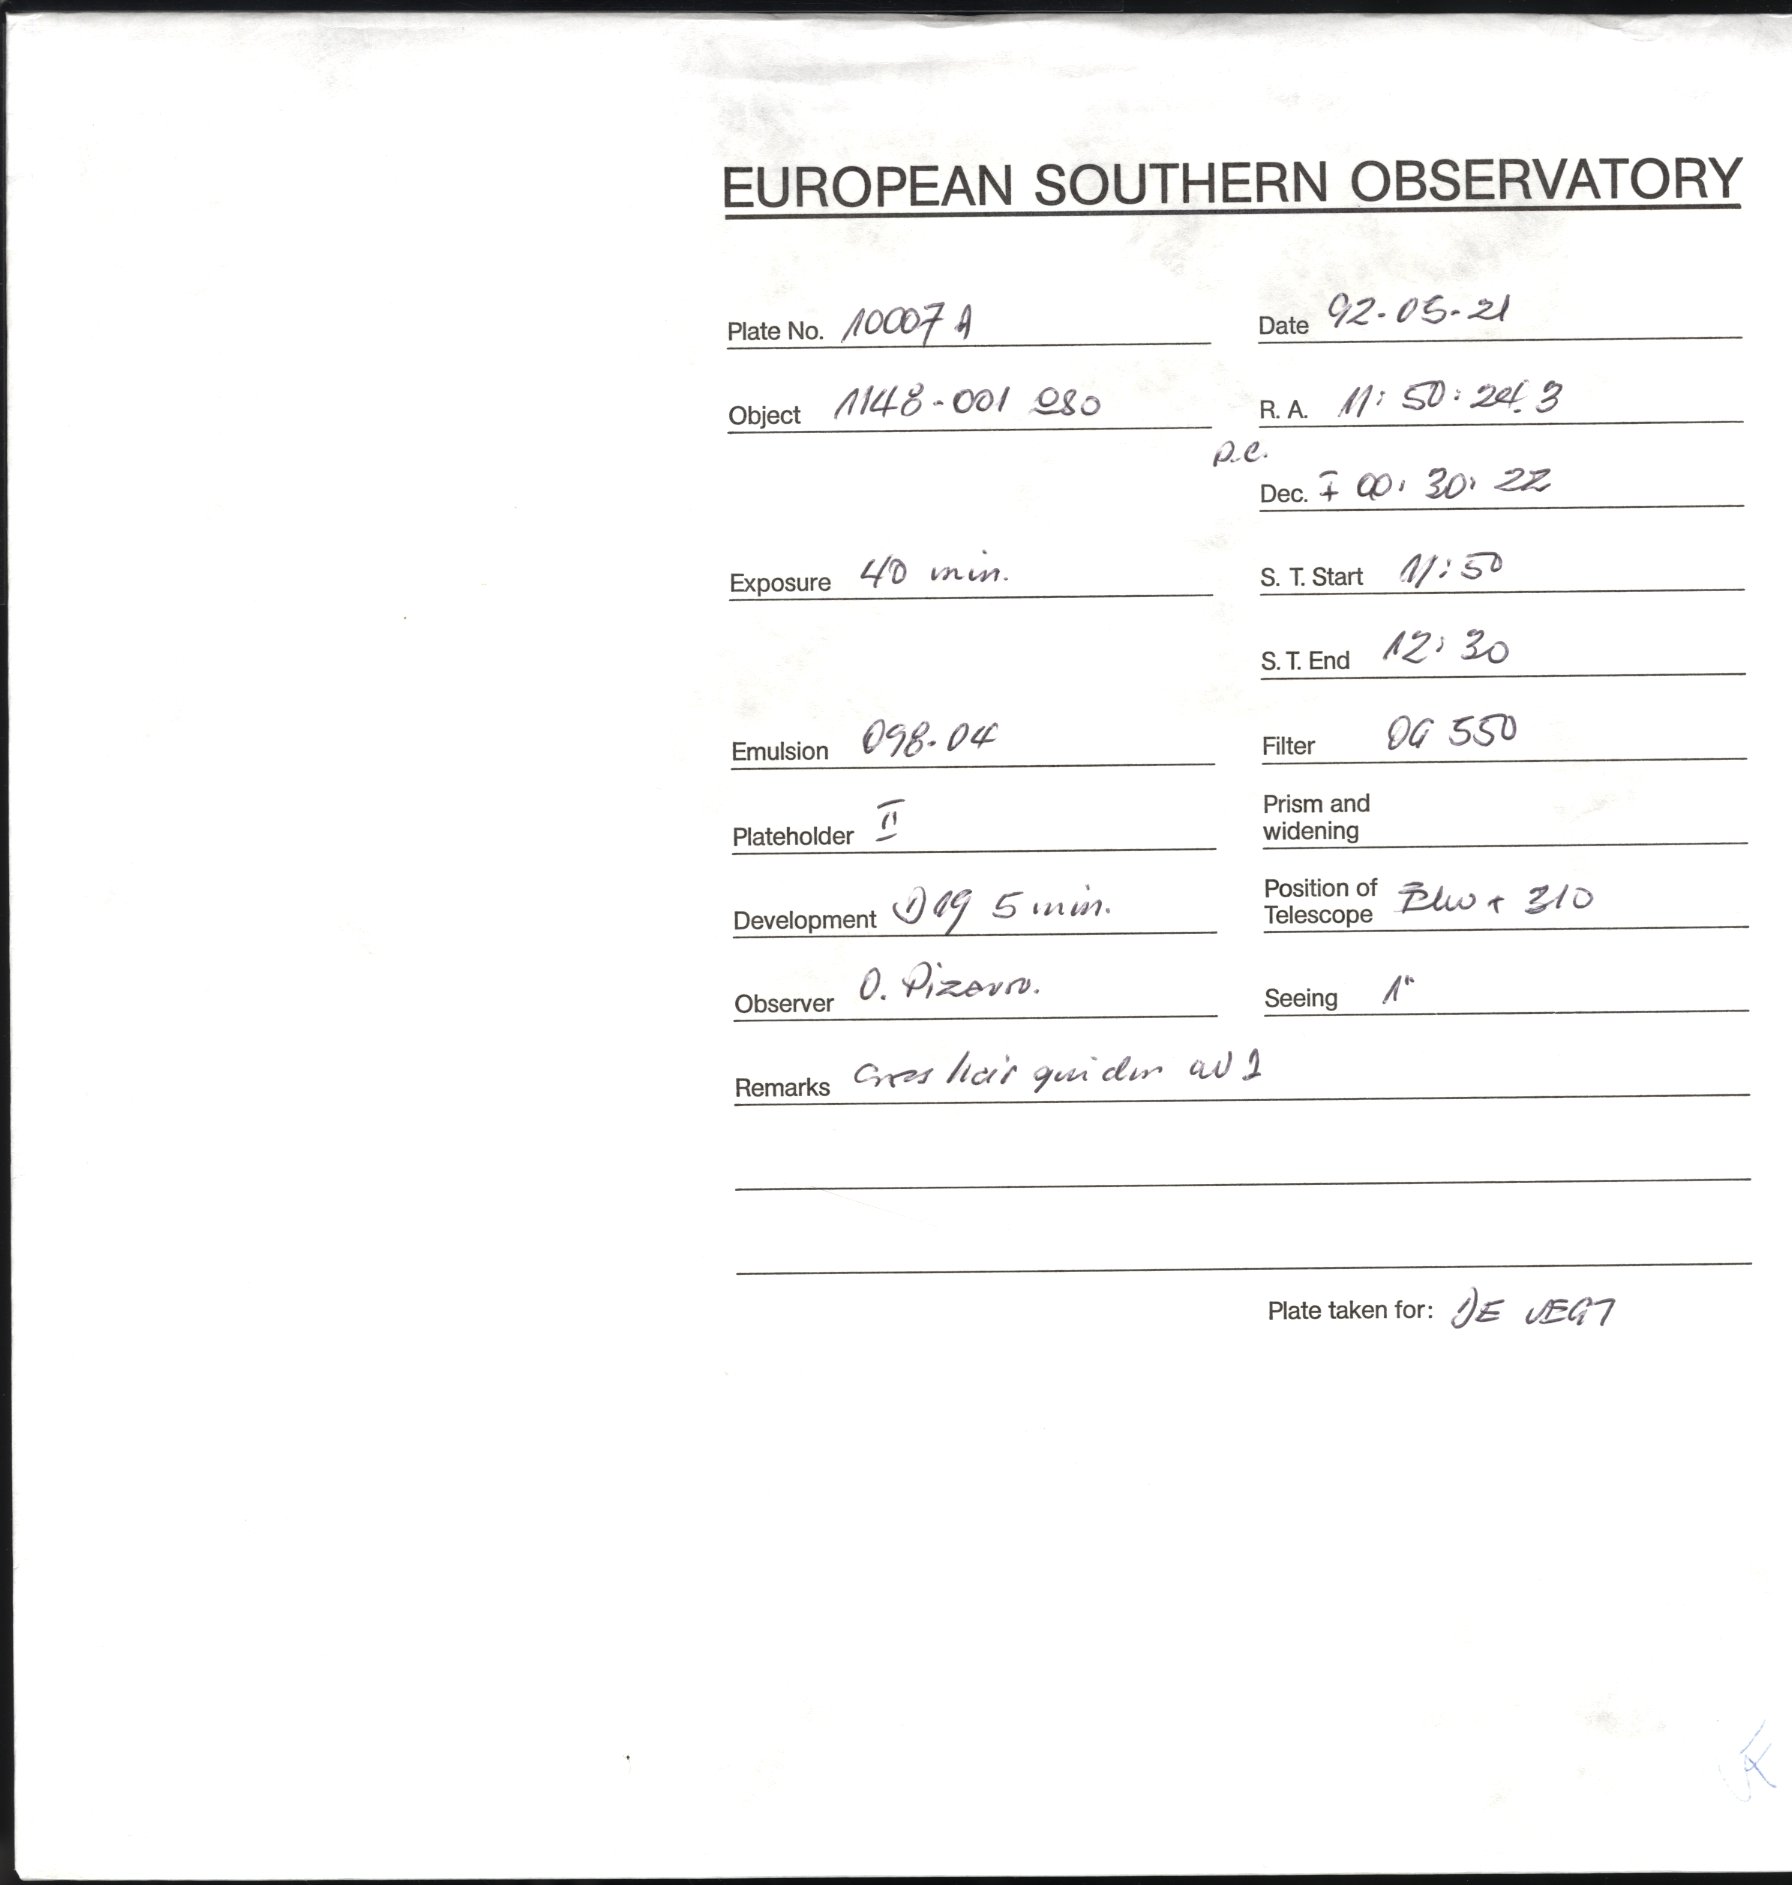 EUROPEAN SOUTHERN OBSERVATORY
Plate No. 10007 A
Date 92-05-21
Object 1148-001 QSO
R. A. 11: 50: 24.3
p.c.
Dec. 00: 30: 22
Exposure 40 min.
S. T. Start 11:50
S. T. End 12: 30
Emulsion 098-04
Filter OG 550
Plateholder II
Prism and
widening
Development D19 5 min.
Position of
Telescope + 310
Observer O. Pizarro.
Seeing 1"
Remarks Cross hair guider
Plate taken for: DE VEGT